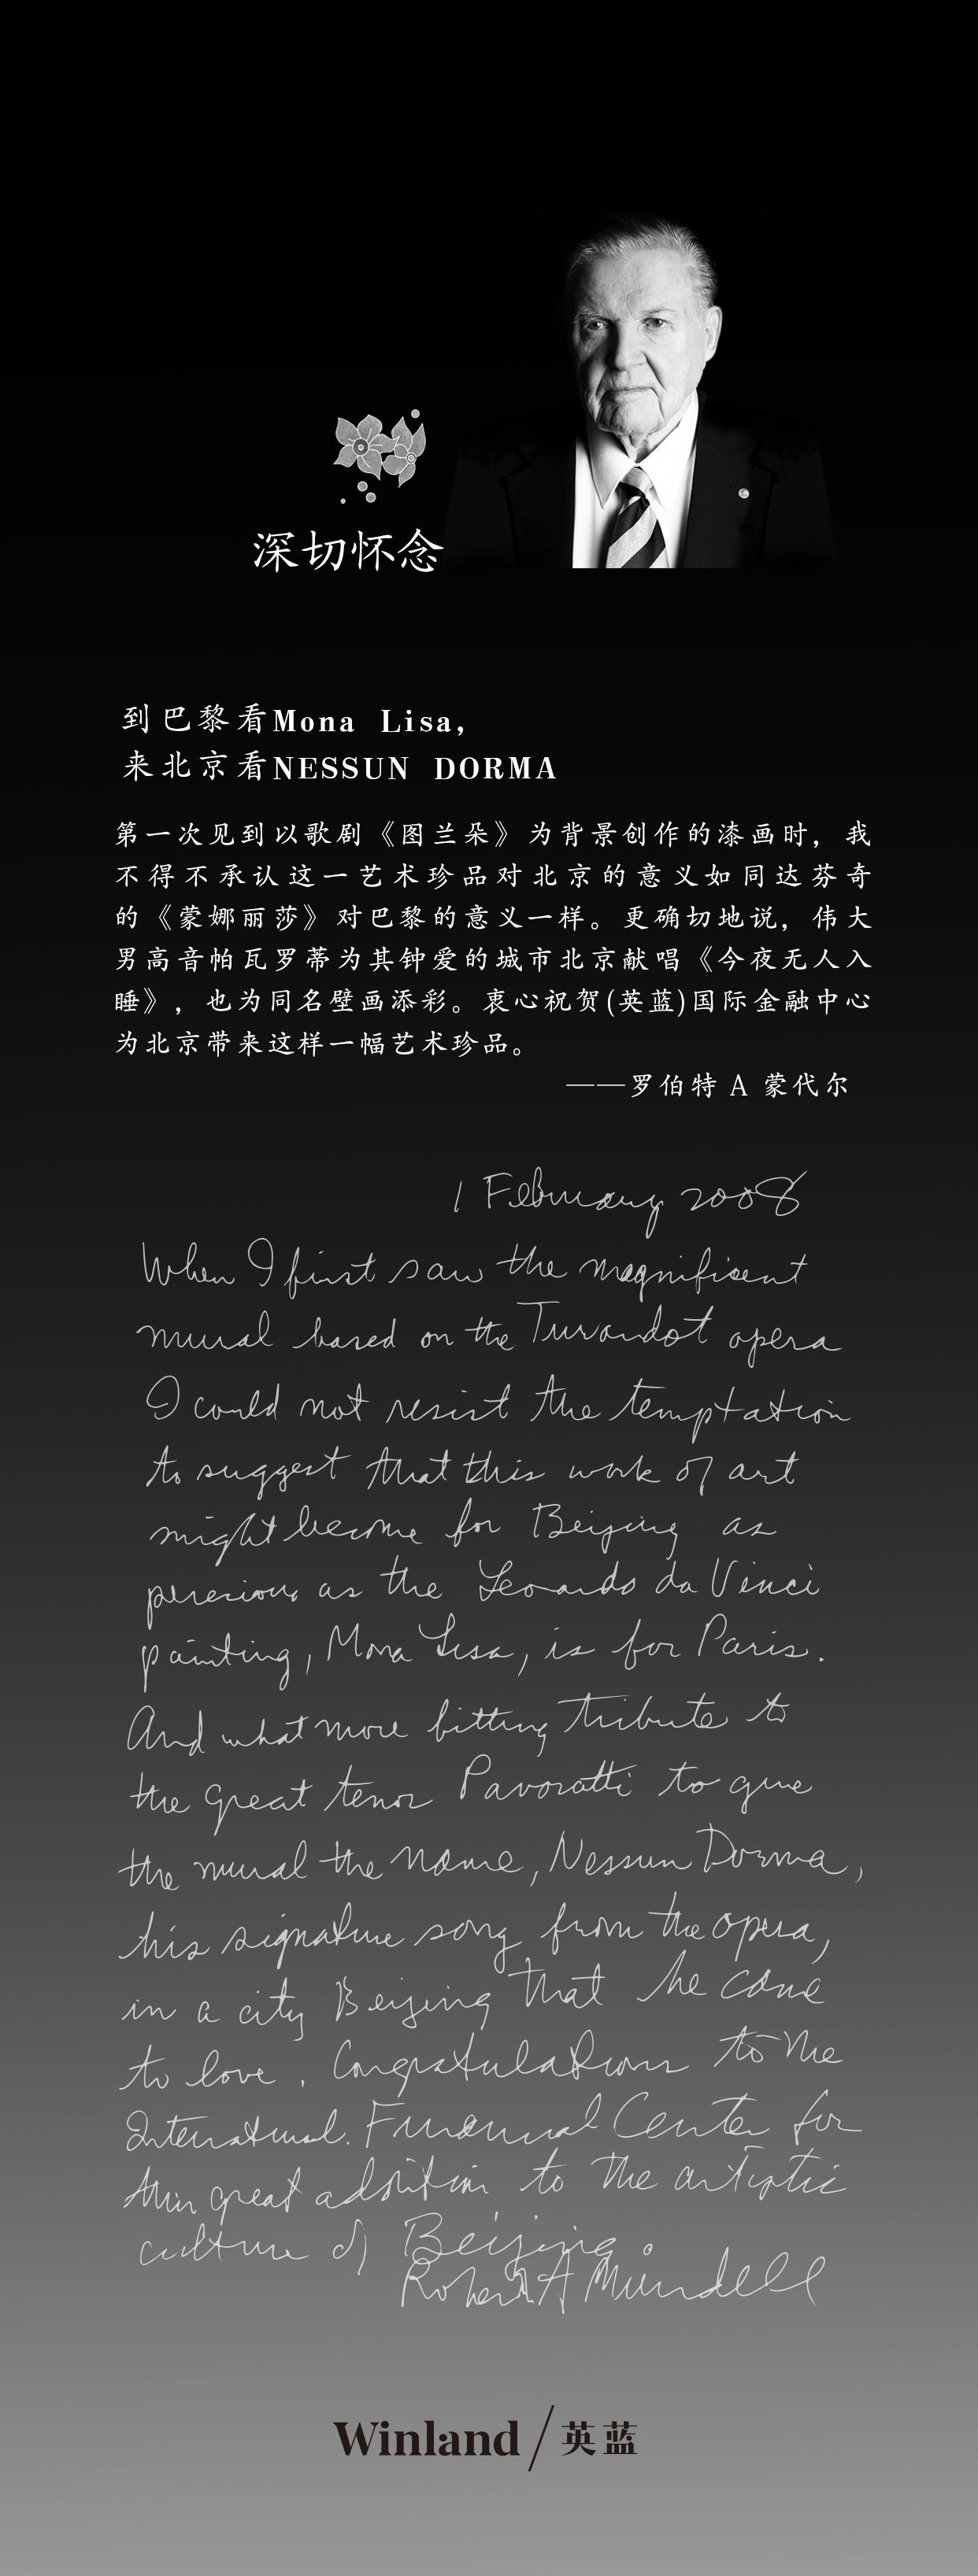 深切怀念
到巴黎看Mona Lisa,
来北京看NESSUN DORMA
第一次见到以歌剧《图兰朵》为背景创作的漆画时，我
不得不承认这一艺术珍品对北京的意义如同达芬奇
的《蒙娜丽莎》对巴黎的意义一样。更确切地说，伟大
男高音帕瓦罗蒂为其钟爱的城市北京献唱《今夜无人入
睡》，也为同名壁画添彩。衷心祝贺(英蓝)国际金融中心
为北京带来这样一幅艺术珍品。
——罗伯特 A 蒙代尔
1 February 2008
When I first saw the magnificent
mural based on the Turandot opera
I could not resist the temptation
to suggest that this work of art
might become for Beijing as
precious as the Leonardo da Vinci
painting, Mona Lisa, is for Paris.
And what more fitting tribute to
the great tenor Pavoratti to give
the mural the name, Nessun Dorma,
his signature song from the opera,
in a city Beijing that he came
to love. Congratulations to the
International Financial Center for
this great addition to the artistic
culture of Beijing.
Robert A Mundell
Winland/英蓝